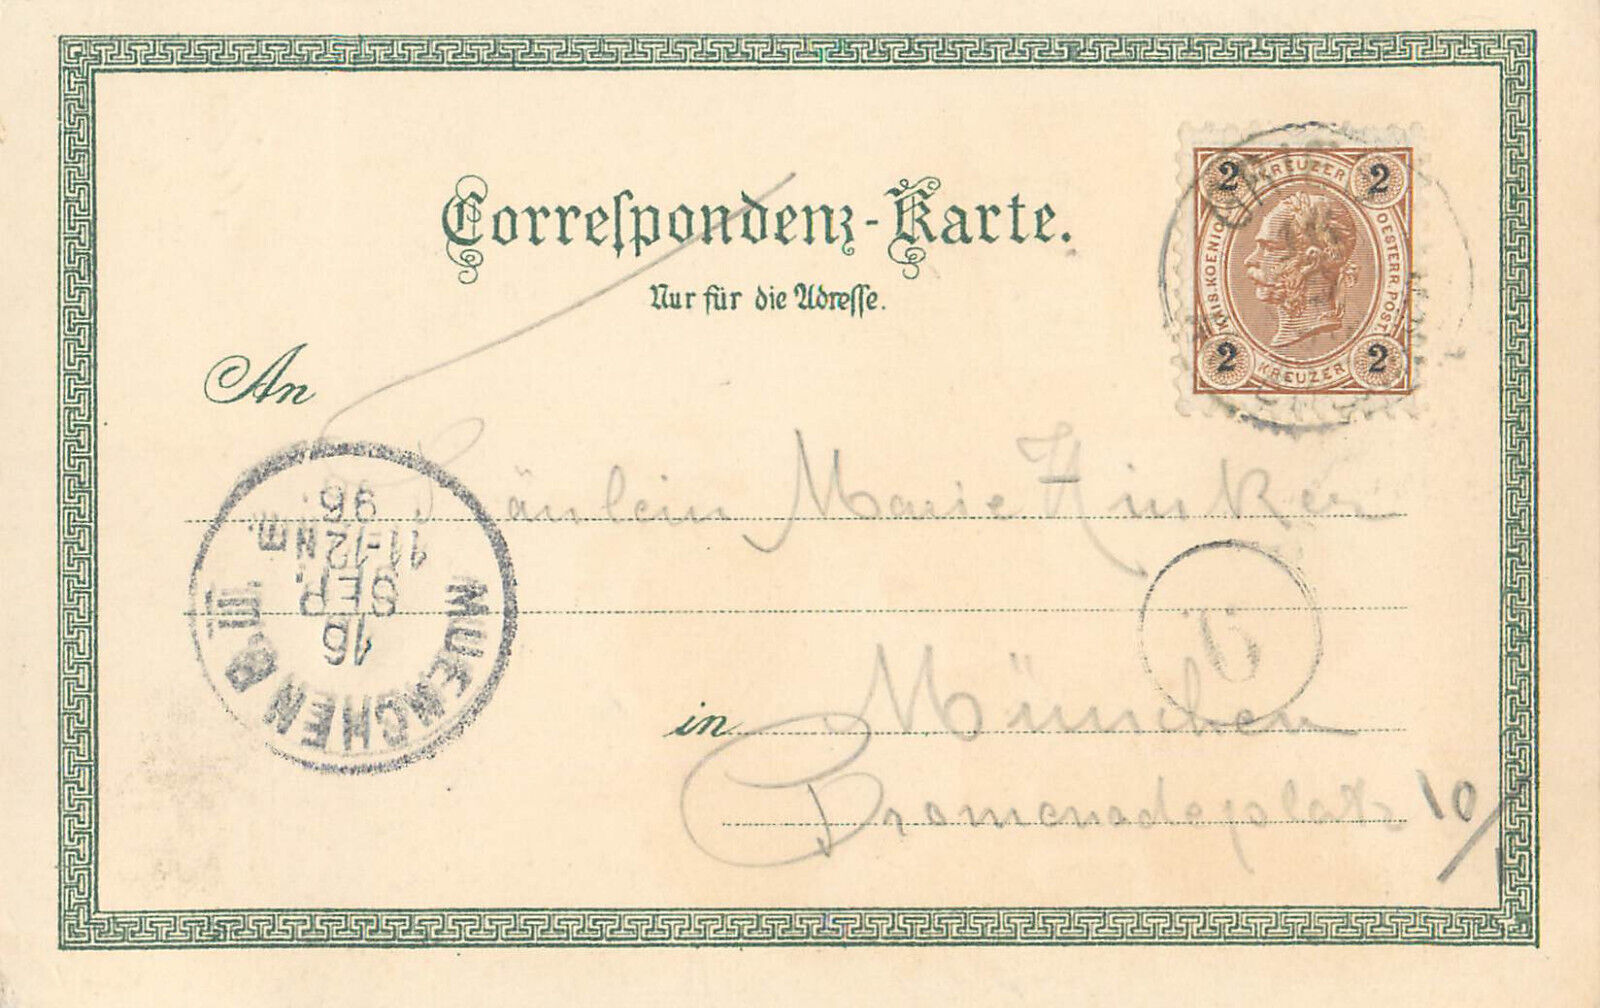 Correspondenz-Karte.
Nur für die Adresse.
2 KREUZER 2
KAIS. KOENIGL. OESTERR. POST.
2 KREUZER 2
An
Fräulein Marie Hinker
MUENCHEN B.III.
16
SEP.
11-12 Nm.
96
6
in München
Promenadeplatz 10/1